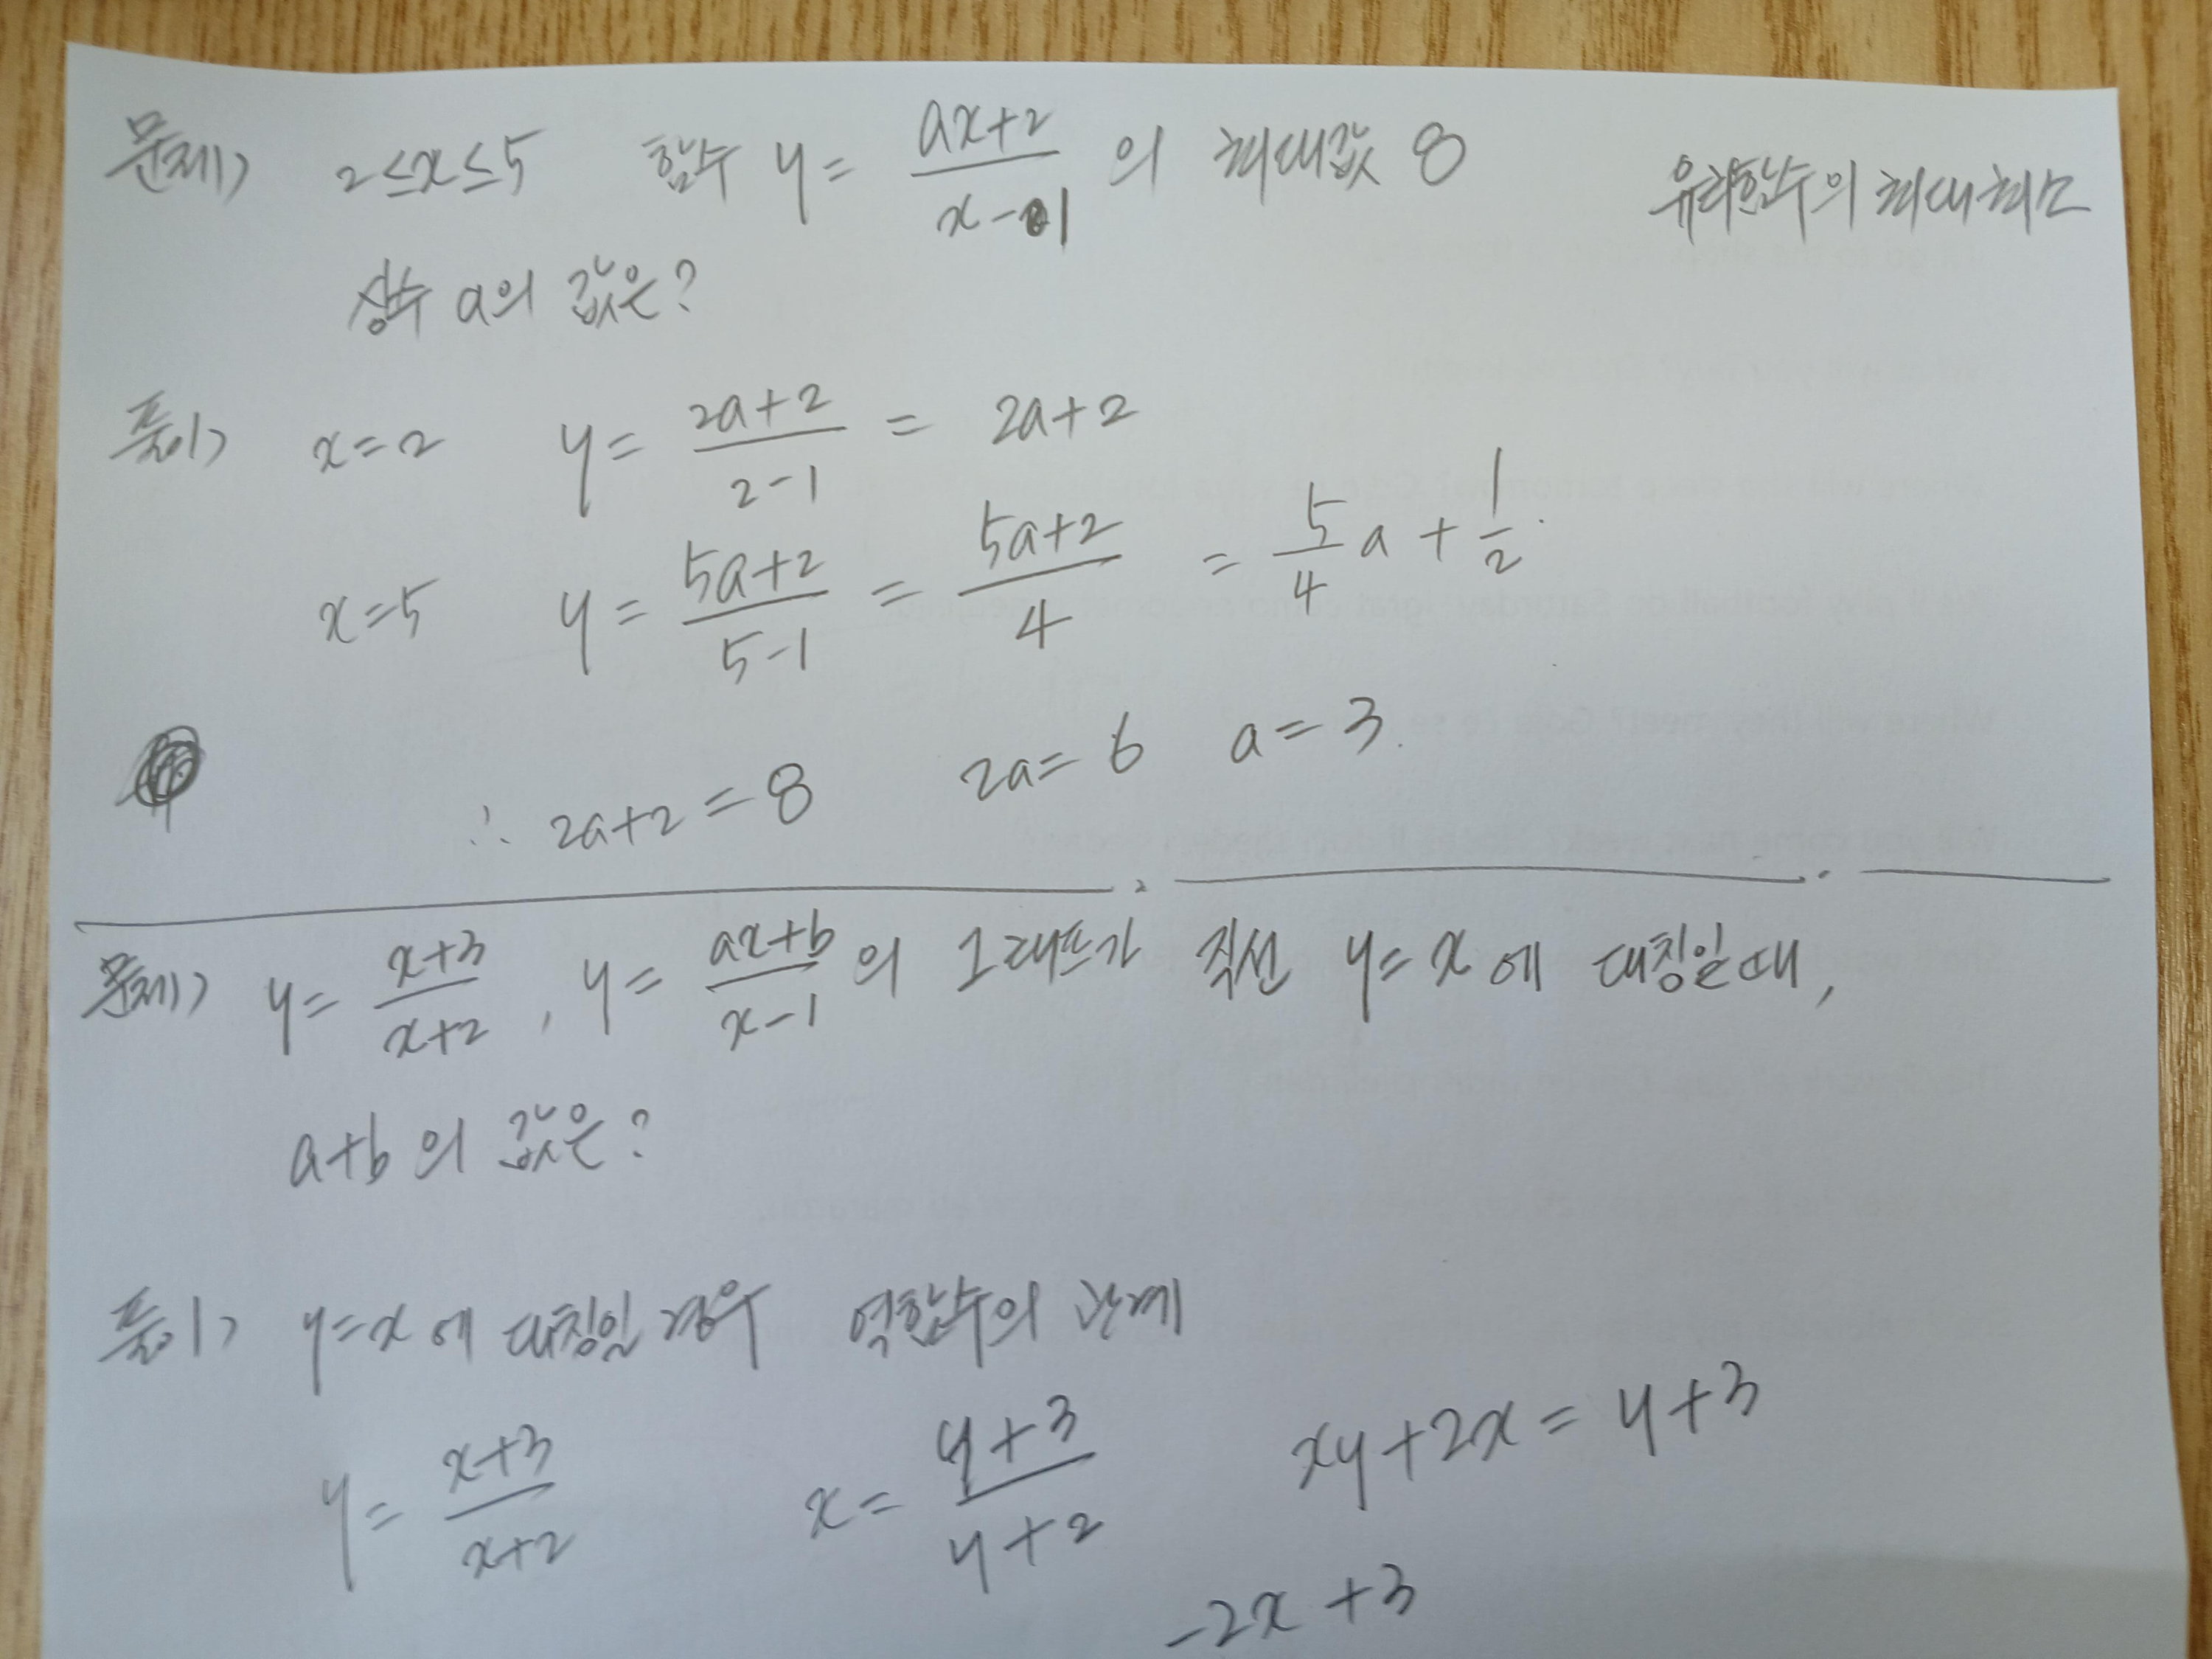 문제) 2≤x≤5 함수 y = (ax+2)/(x-1) 의 최대값 8
유리함수의 최대최소
상수 a의 값은?
풀이) x=2 y = (2a+2)/(2-1) = 2a+2
x=5 y = (5a+2)/(5-1) = (5a+2)/4 = 5/4 a + 1/2.
∴ 2a+2=8 2a=6 a=3.
문제) y = (x+3)/(x+2), y = (ax+b)/(x-1) 의 그래프가 직선 y=x에 대칭일때,
a+b의 값은?
풀이) y=x에 대칭일 경우 역함수의 관계
y = (x+3)/(x+2) x = (y+3)/(y+2) xy+2x=y+3
-2x+3